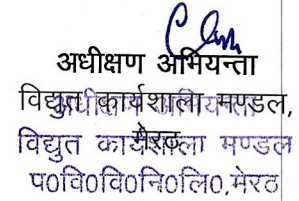 अधीक्षण अभियन्ता
विद्युत कार्यशाला मण्डल,
मेरठ
अधीक्षण अभियन्ता
विद्युत कार्यशाला मण्डल
प0वि0वि0नि0लि0,मेरठ